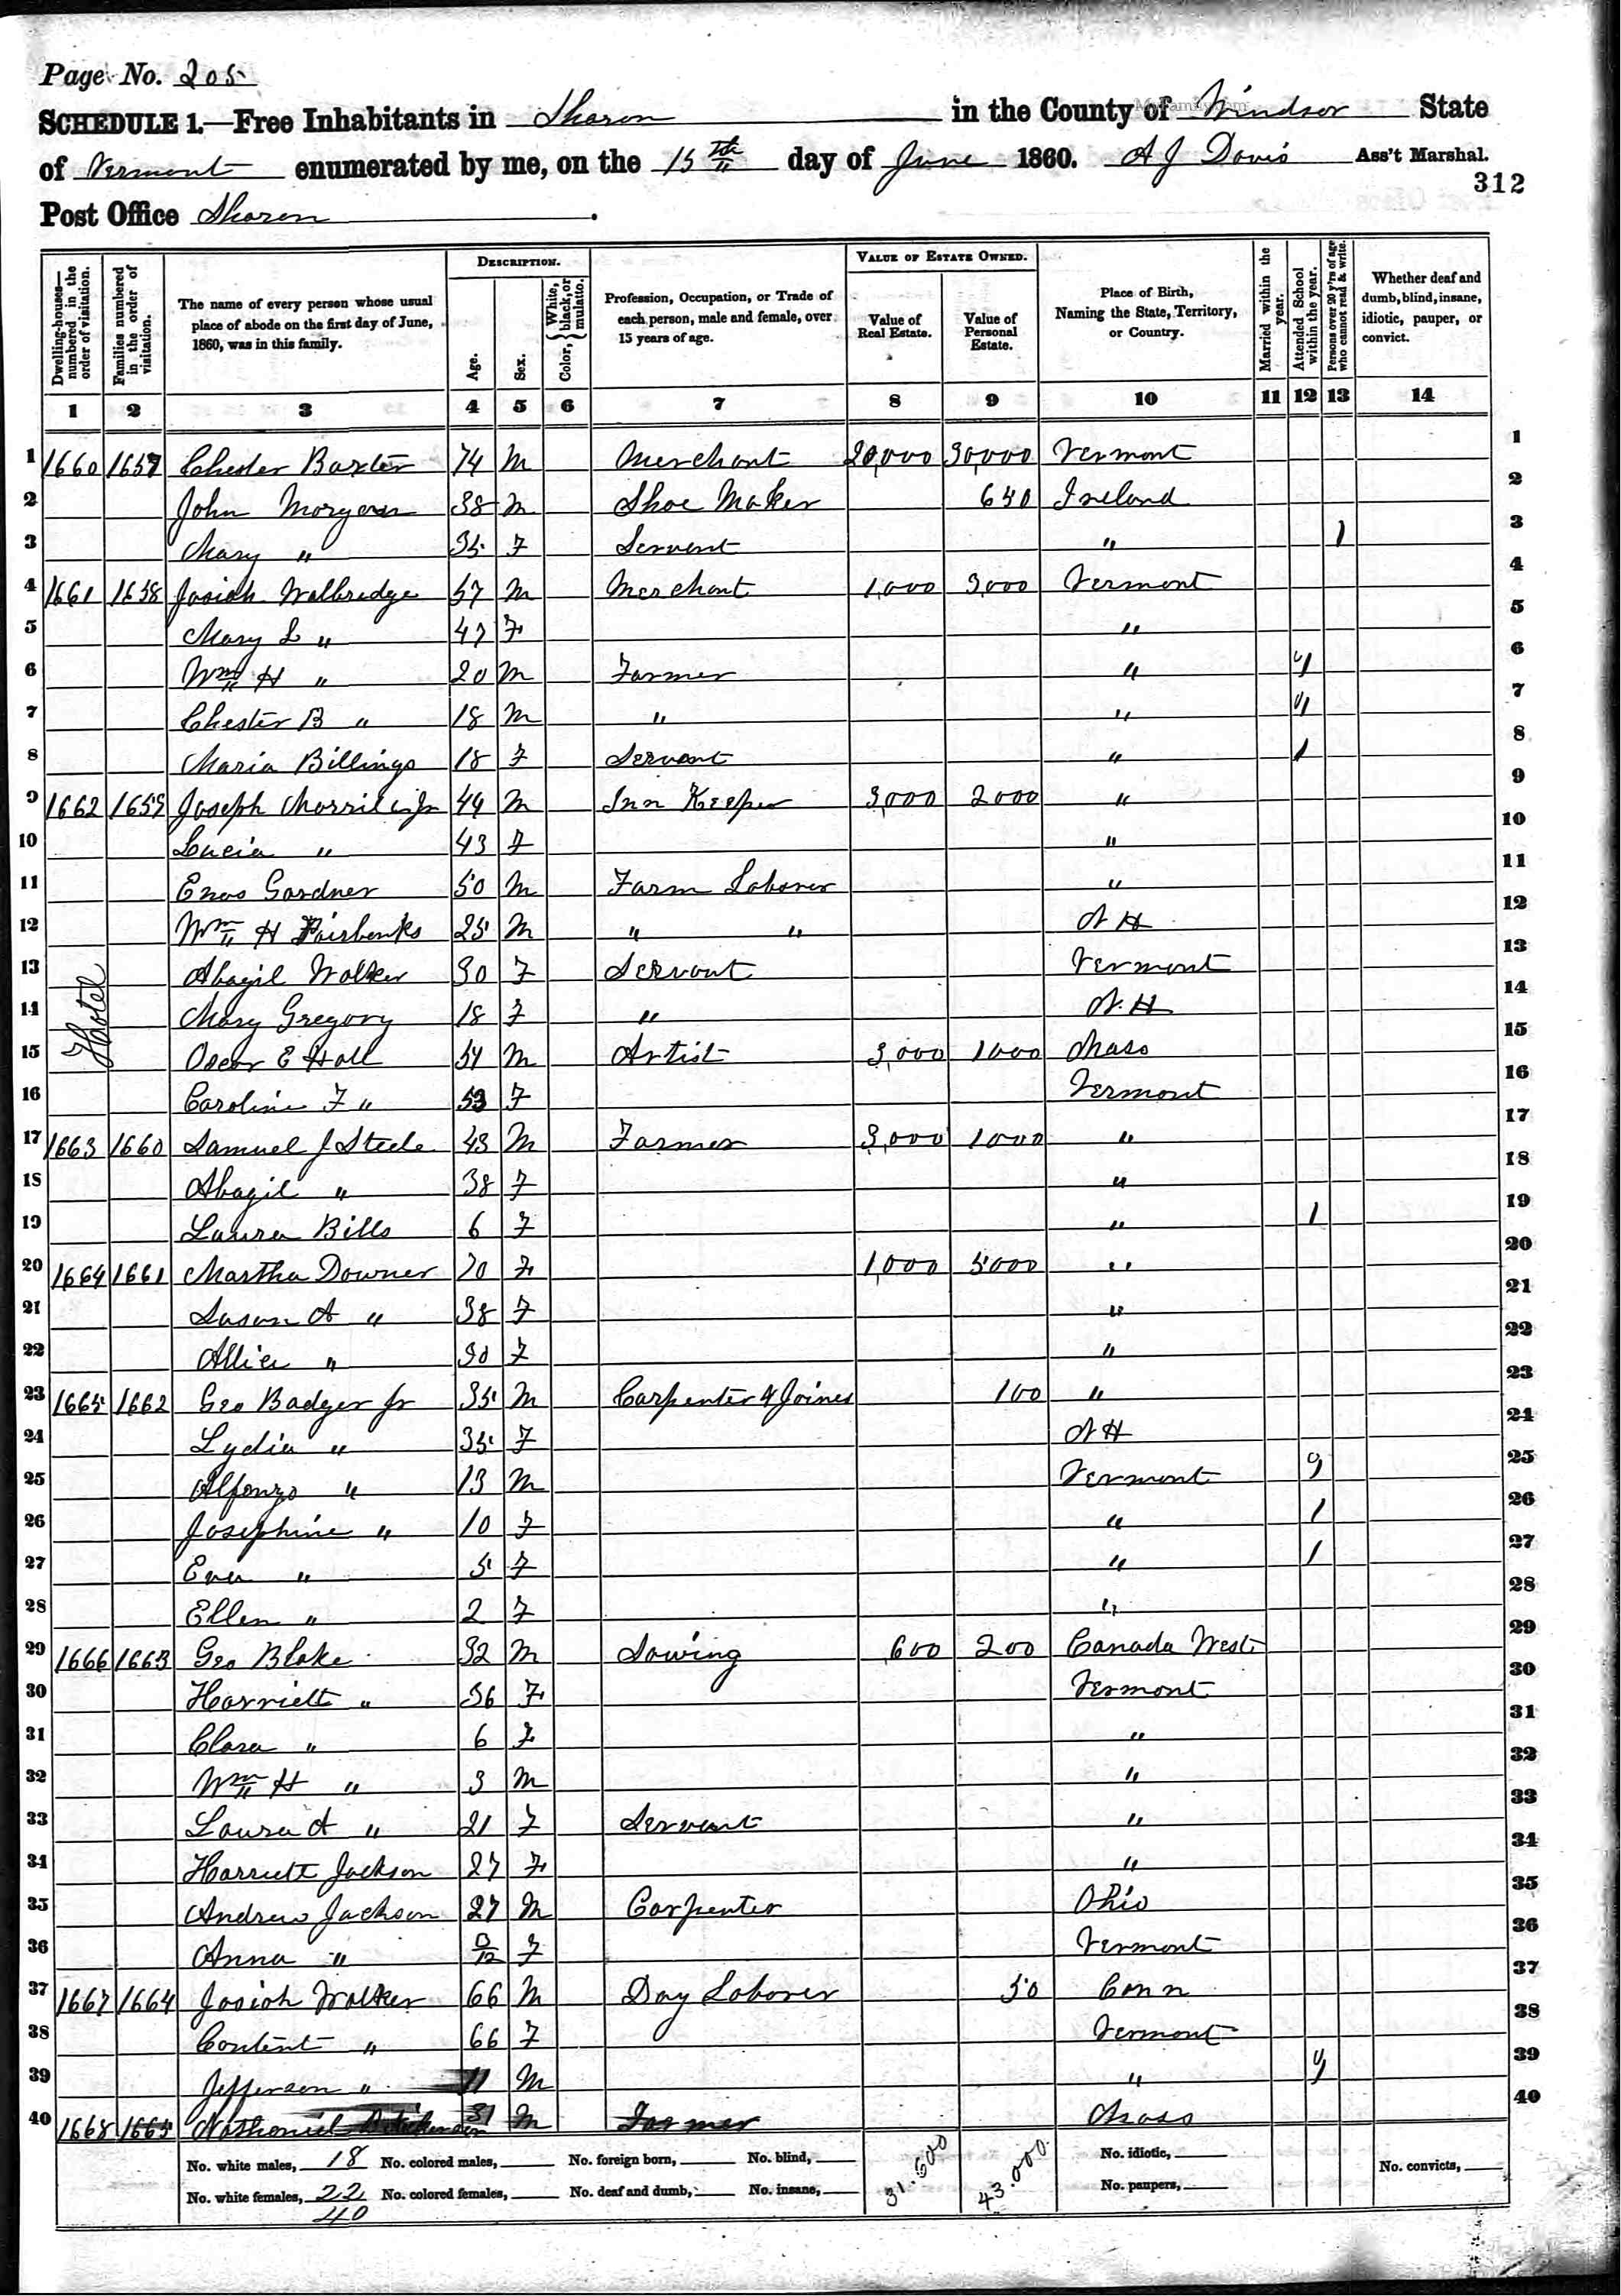 Page No. 205
SCHEDULE 1.—Free Inhabitants in Sharon in the County of Windsor State
MyFamily.com
of Vermont enumerated by me, on the 15th day of June 1860. A J Davis Ass't Marshal.
312
Post Office Sharon.
Dwelling-houses—numbered in the order of visitation.
Families numbered in the order of visitation.
The name of every person whose usual place of abode on the first day of June, 1860, was in this family.
DESCRIPTION.
Age.
Sex.
Color, { White, black, or mulatto.
Profession, Occupation, or Trade of each person, male and female, over 15 years of age.
VALUE OF ESTATE OWNED.
Value of Real Estate.
Value of Personal Estate.
Place of Birth, Naming the State, Territory, or Country.
Married within the year.
Attended School within the year.
Persons over 20 y'rs of age who cannot read & write.
Whether deaf and dumb, blind, insane, idiotic, pauper, or convict.
1 2 3 4 5 6 7 8 9 10 11 12 13 14
1 1660 1657 Chester Baxter 74 M Merchant 20,000 30,000 Vermont 1
2 John Morgan 38 M Shoe Maker 650 Ireland 2
3 Mary " 35 F Servent " 1 3
4 1661 1658 Josiah Walbridge 57 M Merchant 1,000 3,000 Vermont 4
5 Mary L " 47 F " 5
6 Wm H " 20 M Farmer " 1 6
7 Chester B " 18 M " " 1 7
8 Maria Billings 18 F Servant " 1 8
9 1662 1659 Joseph Morrill Jr 49 M Inn Keeper 3,000 2000 " 9
10 Lucia " 43 F " 10
11 Enos Gardner 50 M Farm Laborer " 11
12 Wm H Fairbanks 25 M " " N H 12
13 Abagil Walker 30 F Servant Vermont 13
Hotel
14 Mary Gregory 18 F " N. H 14
15 Oscar E Hall 54 M Artist 3,000 1000 Mass 15
16 Caroline F " 53 F Vermont 16
17 1663 1660 Samuel J Steele 43 M Farmer 3,000 1000 " 17
18 Abagil " 38 F " 18
19 Laura Bills 6 F " 1 19
20 1664 1661 Martha Downer 70 F 1,000 5000 " 20
21 Susan A " 38 F " 21
22 Allice " 30 F " 22
23 1665 1662 Geo Badger Jr 35 M Carpenter & Joiner 100 " 23
24 Lydia " 35 F N H 24
25 Alfonzo " 13 M Vermont 1 25
26 Josephine " 10 F " 1 26
27 Eva " 5 F " 1 27
28 Ellen " 2 F " 28
29 1666 1663 Geo Blake 32 M Sawing 600 200 Canada West 29
30 Harriett " 36 F Vermont 30
31 Clara " 6 F " 31
32 Wm H " 3 M " 32
33 Laura A " 21 F Servant " 33
34 Harriett Jackson 27 F " 34
35 Andrew Jackson 27 M Carpenter Ohio 35
36 Anna " /12 F Vermont 36
37 1667 1664 Josiah Walker 66 M Day Laborer 50 Conn 37
38 Content " 66 F Vermont 38
39 Jefferson " 11 M " 1 39
40 1668 1665 Nathaniel 31 M Farmer Mass 40
No. white males, 18 No. colored males, No. foreign born, No. blind, 31.600 43.000 No. idiotic, No. convicts,
No. white females, 22 No. colored females, No. deaf and dumb, No. insane, No. paupers,
40